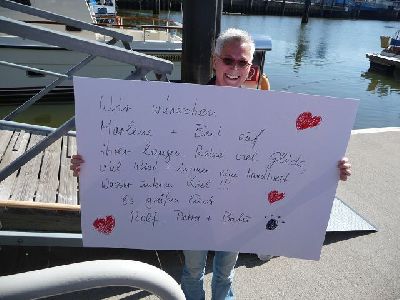 Wir wünschen
Marlene + Emil auf
ihrer langen Reise viel Glück,
viel Wind, immer eine handbreit
Wasser unterm Kiel !!!
Es grüßen Euch
Rolf Petra +